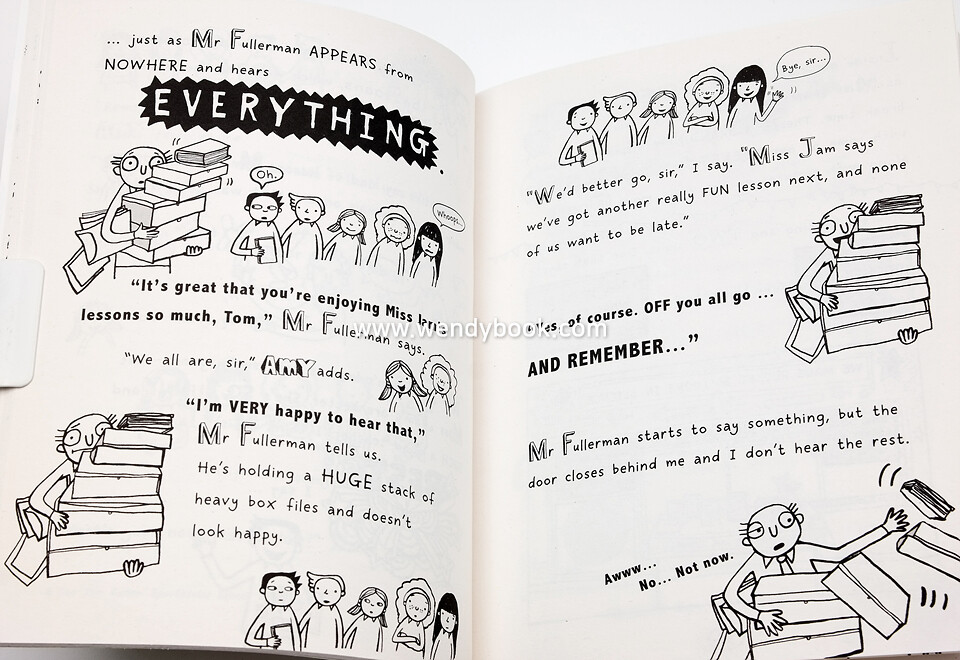 ... just as Mr Fullerman APPEARS from
NOWHERE and hears
EVERYTHING.
Oh.
Whoops.
"It's great that you're enjoying Miss Jam's
lessons so much, Tom," Mr Fullerman says.
"We all are, sir," AMY adds.
"I'm VERY happy to hear that,"
Mr Fullerman tells us.
He's holding a HUGE stack of
heavy box files and doesn't
look happy.
Bye, sir...
"We'd better go, sir," I say. "Miss Jam says
we've got another really FUN lesson next, and none
of us want to be late."
of course. OFF you all go ...
AND REMEMBER..."
Mr Fullerman starts to say something, but the
door closes behind me and I don't hear the rest.
Awww...
No... Not now.
www.wendybook.com